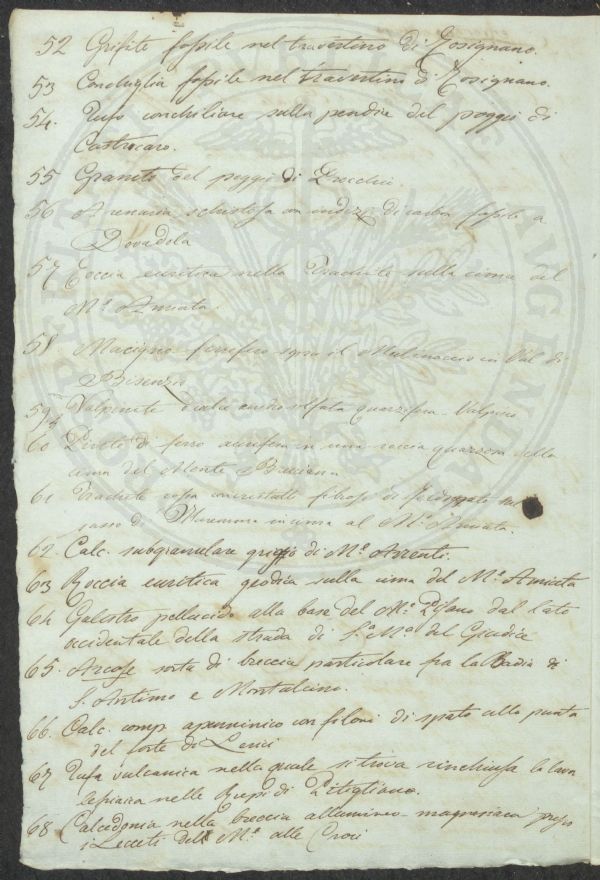 52 Grifite fossile nel travertino di Rosignano.
53 Conchiglia fossile nel travertino di Rosignano.
54. Tufo conchiliare sulla pendice del poggio di
Castrocaro.
55 Granito del poggio di
56 Arenaria schistosa con indizi di carbon fossile a
Dovadola
57 Roccia euritica nella Trachite sulla cima del
M.e Amiata.
58 Macigno sopra il Mulinaccio in Val di
Bisenzio
59 quarzifera
60 di ferro aurifera in una roccia quarzosa della
cima del Monte
61 Trachite rosea con cristalli di feldspato nel
sasso di Maremma in cima al M.e Amiata.
62. Calc. subgranulare grigio di M.e Argenti.
63 Roccia euritica geodica sulla cima del M.e Amiata
64 Galestro pellucido alla base del M.e Pisano dal lato
occidentale della strada di S.a M.a del Giudice
65. Arcose sorta di breccia particolare fra la Badia di
S. Antimo e Montalcino.
66. Calc. comp. apenninico con filoni di spato alla punta
del forte di Lerici
67 Tufa vulcanica nella quale si trova rinchiusa la lava
nelle Rupi di Pitigliano.
68 Calcedonia nella breccia allumineo-magnesiaca presso
i Lecceti del M.e alle Croci
PUBLICAE AUGENDAE